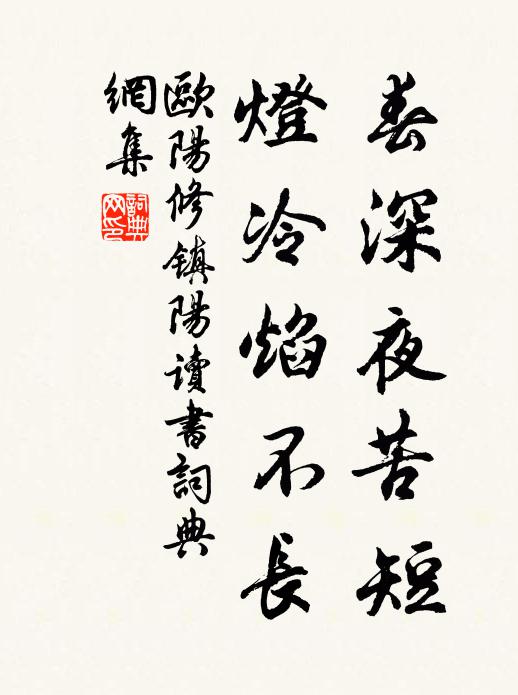 春深夜苦短
燈冷焰不長
歐陽修鎮陽讀書詞典
網集
詞典网印